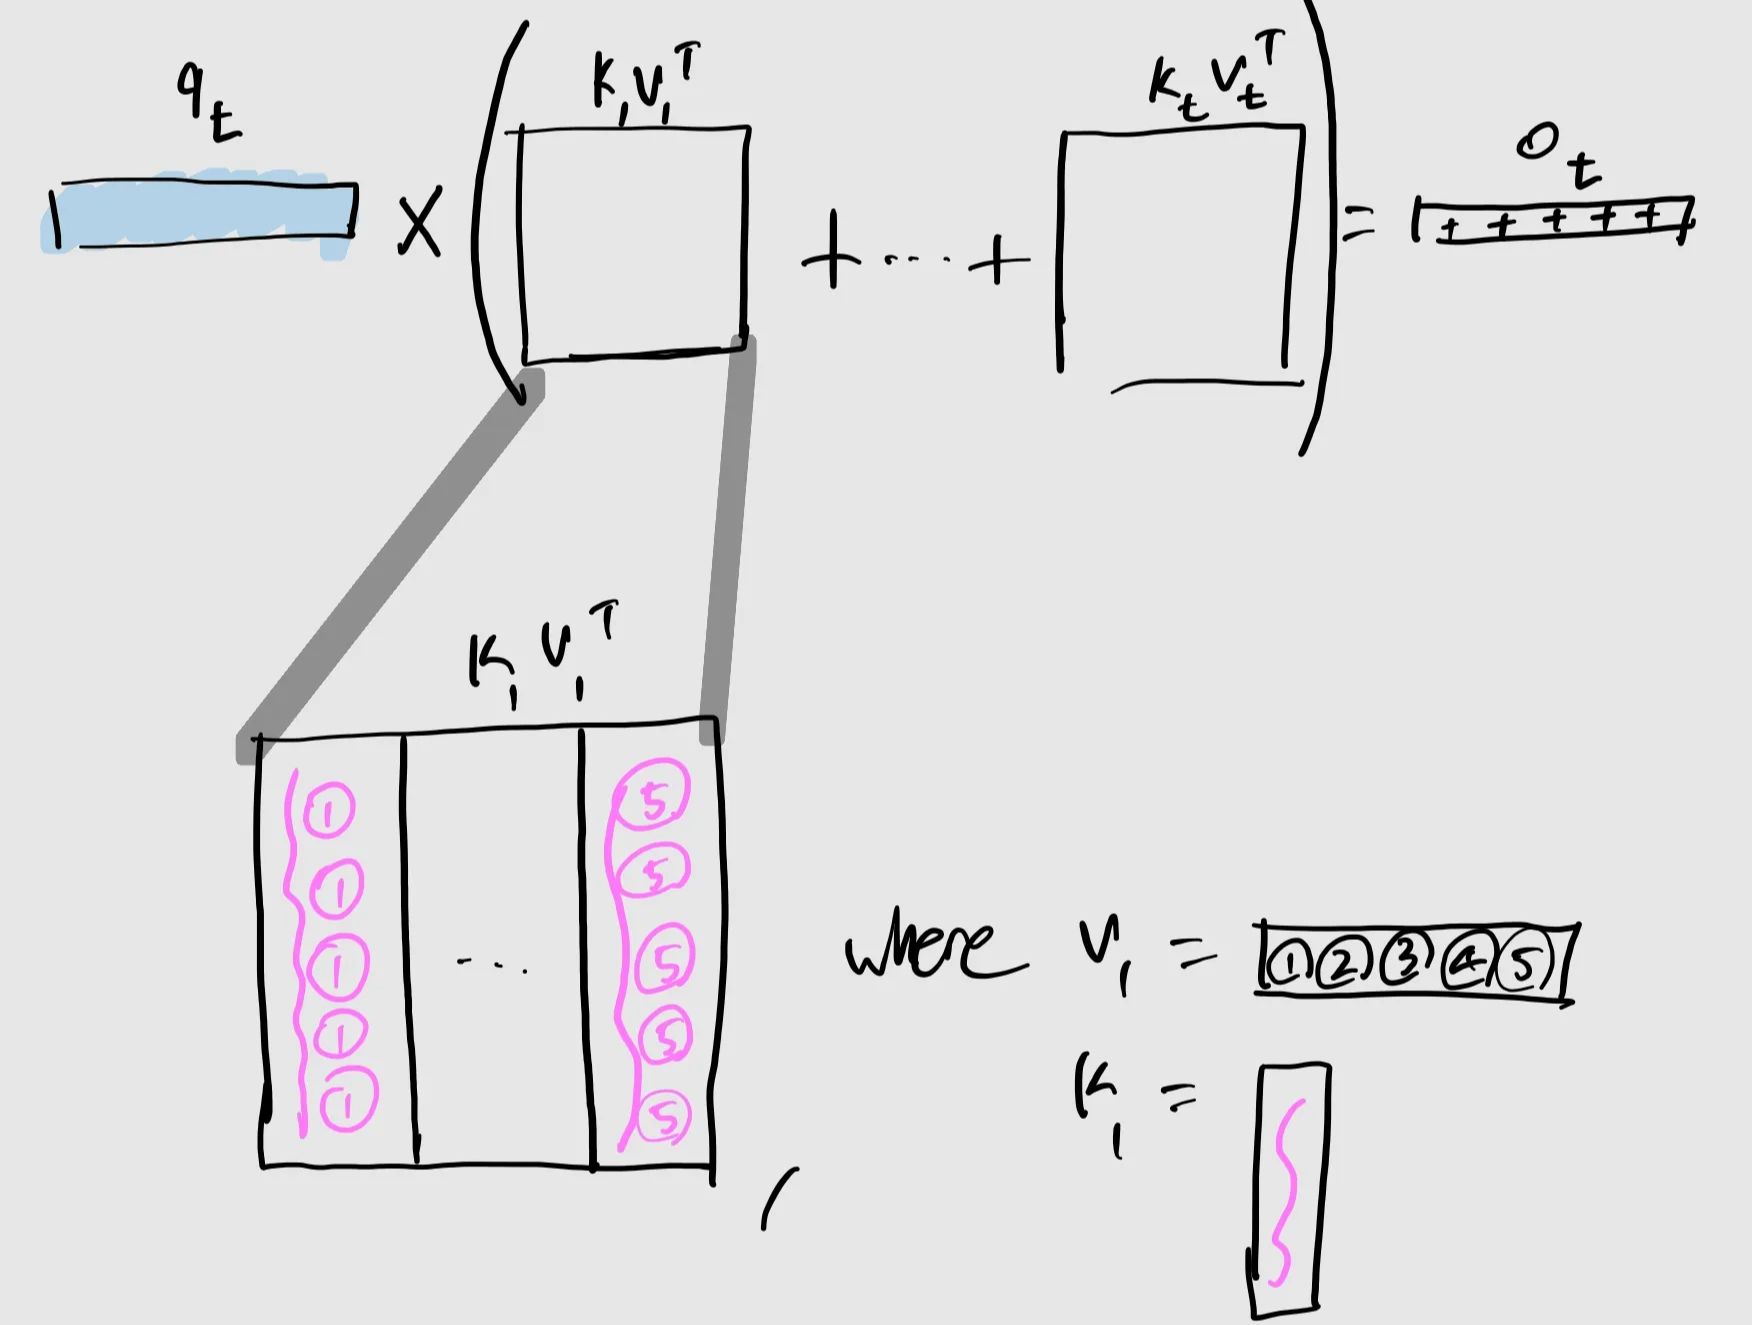 q_t × ( k_1 v_1^T + .... + k_t v_t^T ) = o_t
+ + + + +
k_1 v_1^T
① ... ⑤
① ⑤
① ⑤
① ⑤
① ⑤
,
where v_1 = ① ② ③ ④ ⑤
k_1 =